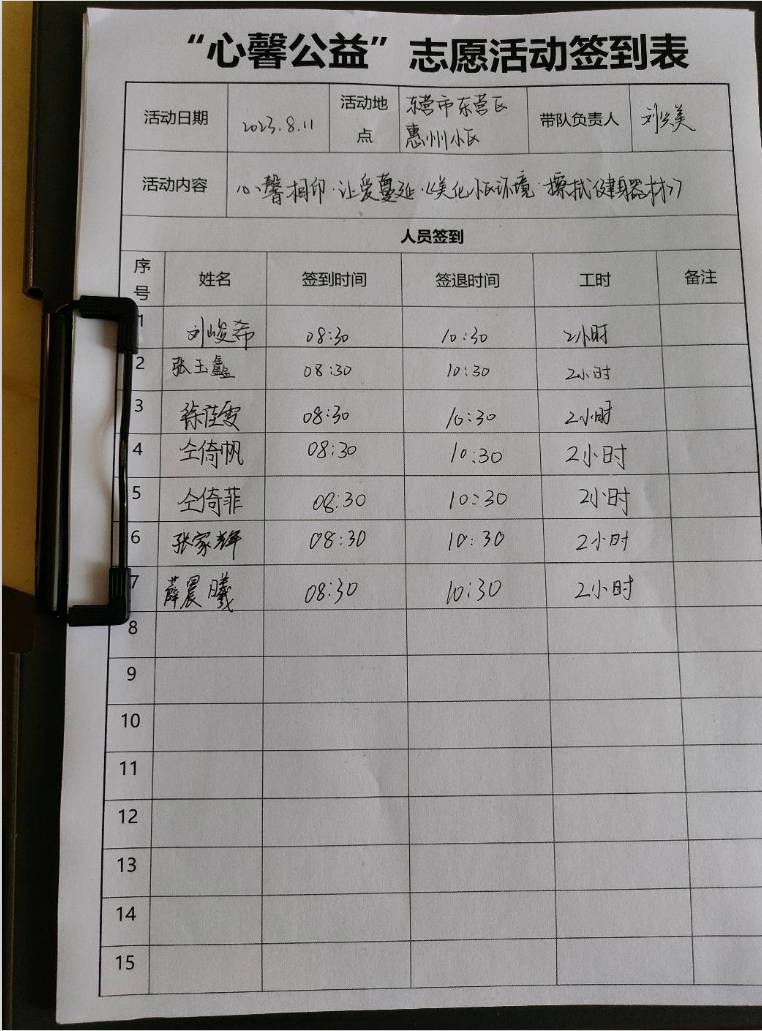 “心馨公益”志愿活动签到表
活动日期 2023.8.11 活动地点 东营市东营区惠州小区 带队负责人 刘美
活动内容 心馨相印·让爱蔓延·《美化小区环境·擦拭健身器材》
人员签到
序号 姓名 签到时间 签退时间 工时 备注
1 刘峻希 08:30 10:30 2小时
2 张玉鑫 08:30 10:30 2小时
3 徐滢雯 08:30 10:30 2小时
4 仝倚帆 08:30 10:30 2小时
5 仝倚菲 08:30 10:30 2小时
6 张家辉 08:30 10:30 2小时
7 薛晨曦 08:30 10:30 2小时
8
9
10
11
12
13
14
15